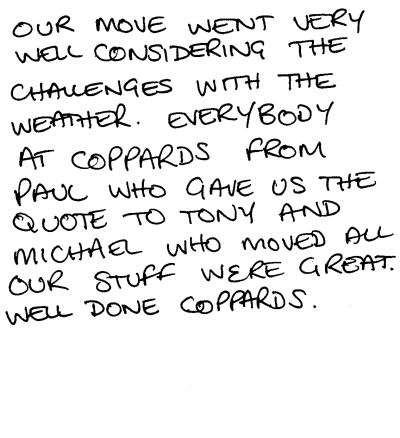 OUR MOVE WENT VERY
WELL CONSIDERING THE
CHALLENGES WITH THE
WEATHER. EVERYBODY
AT COPPARDS FROM
PAUL WHO GAVE US THE
QUOTE TO TONY AND
MICHAEL WHO MOVED ALL
OUR STUFF WERE GREAT.
WELL DONE COPPARDS.